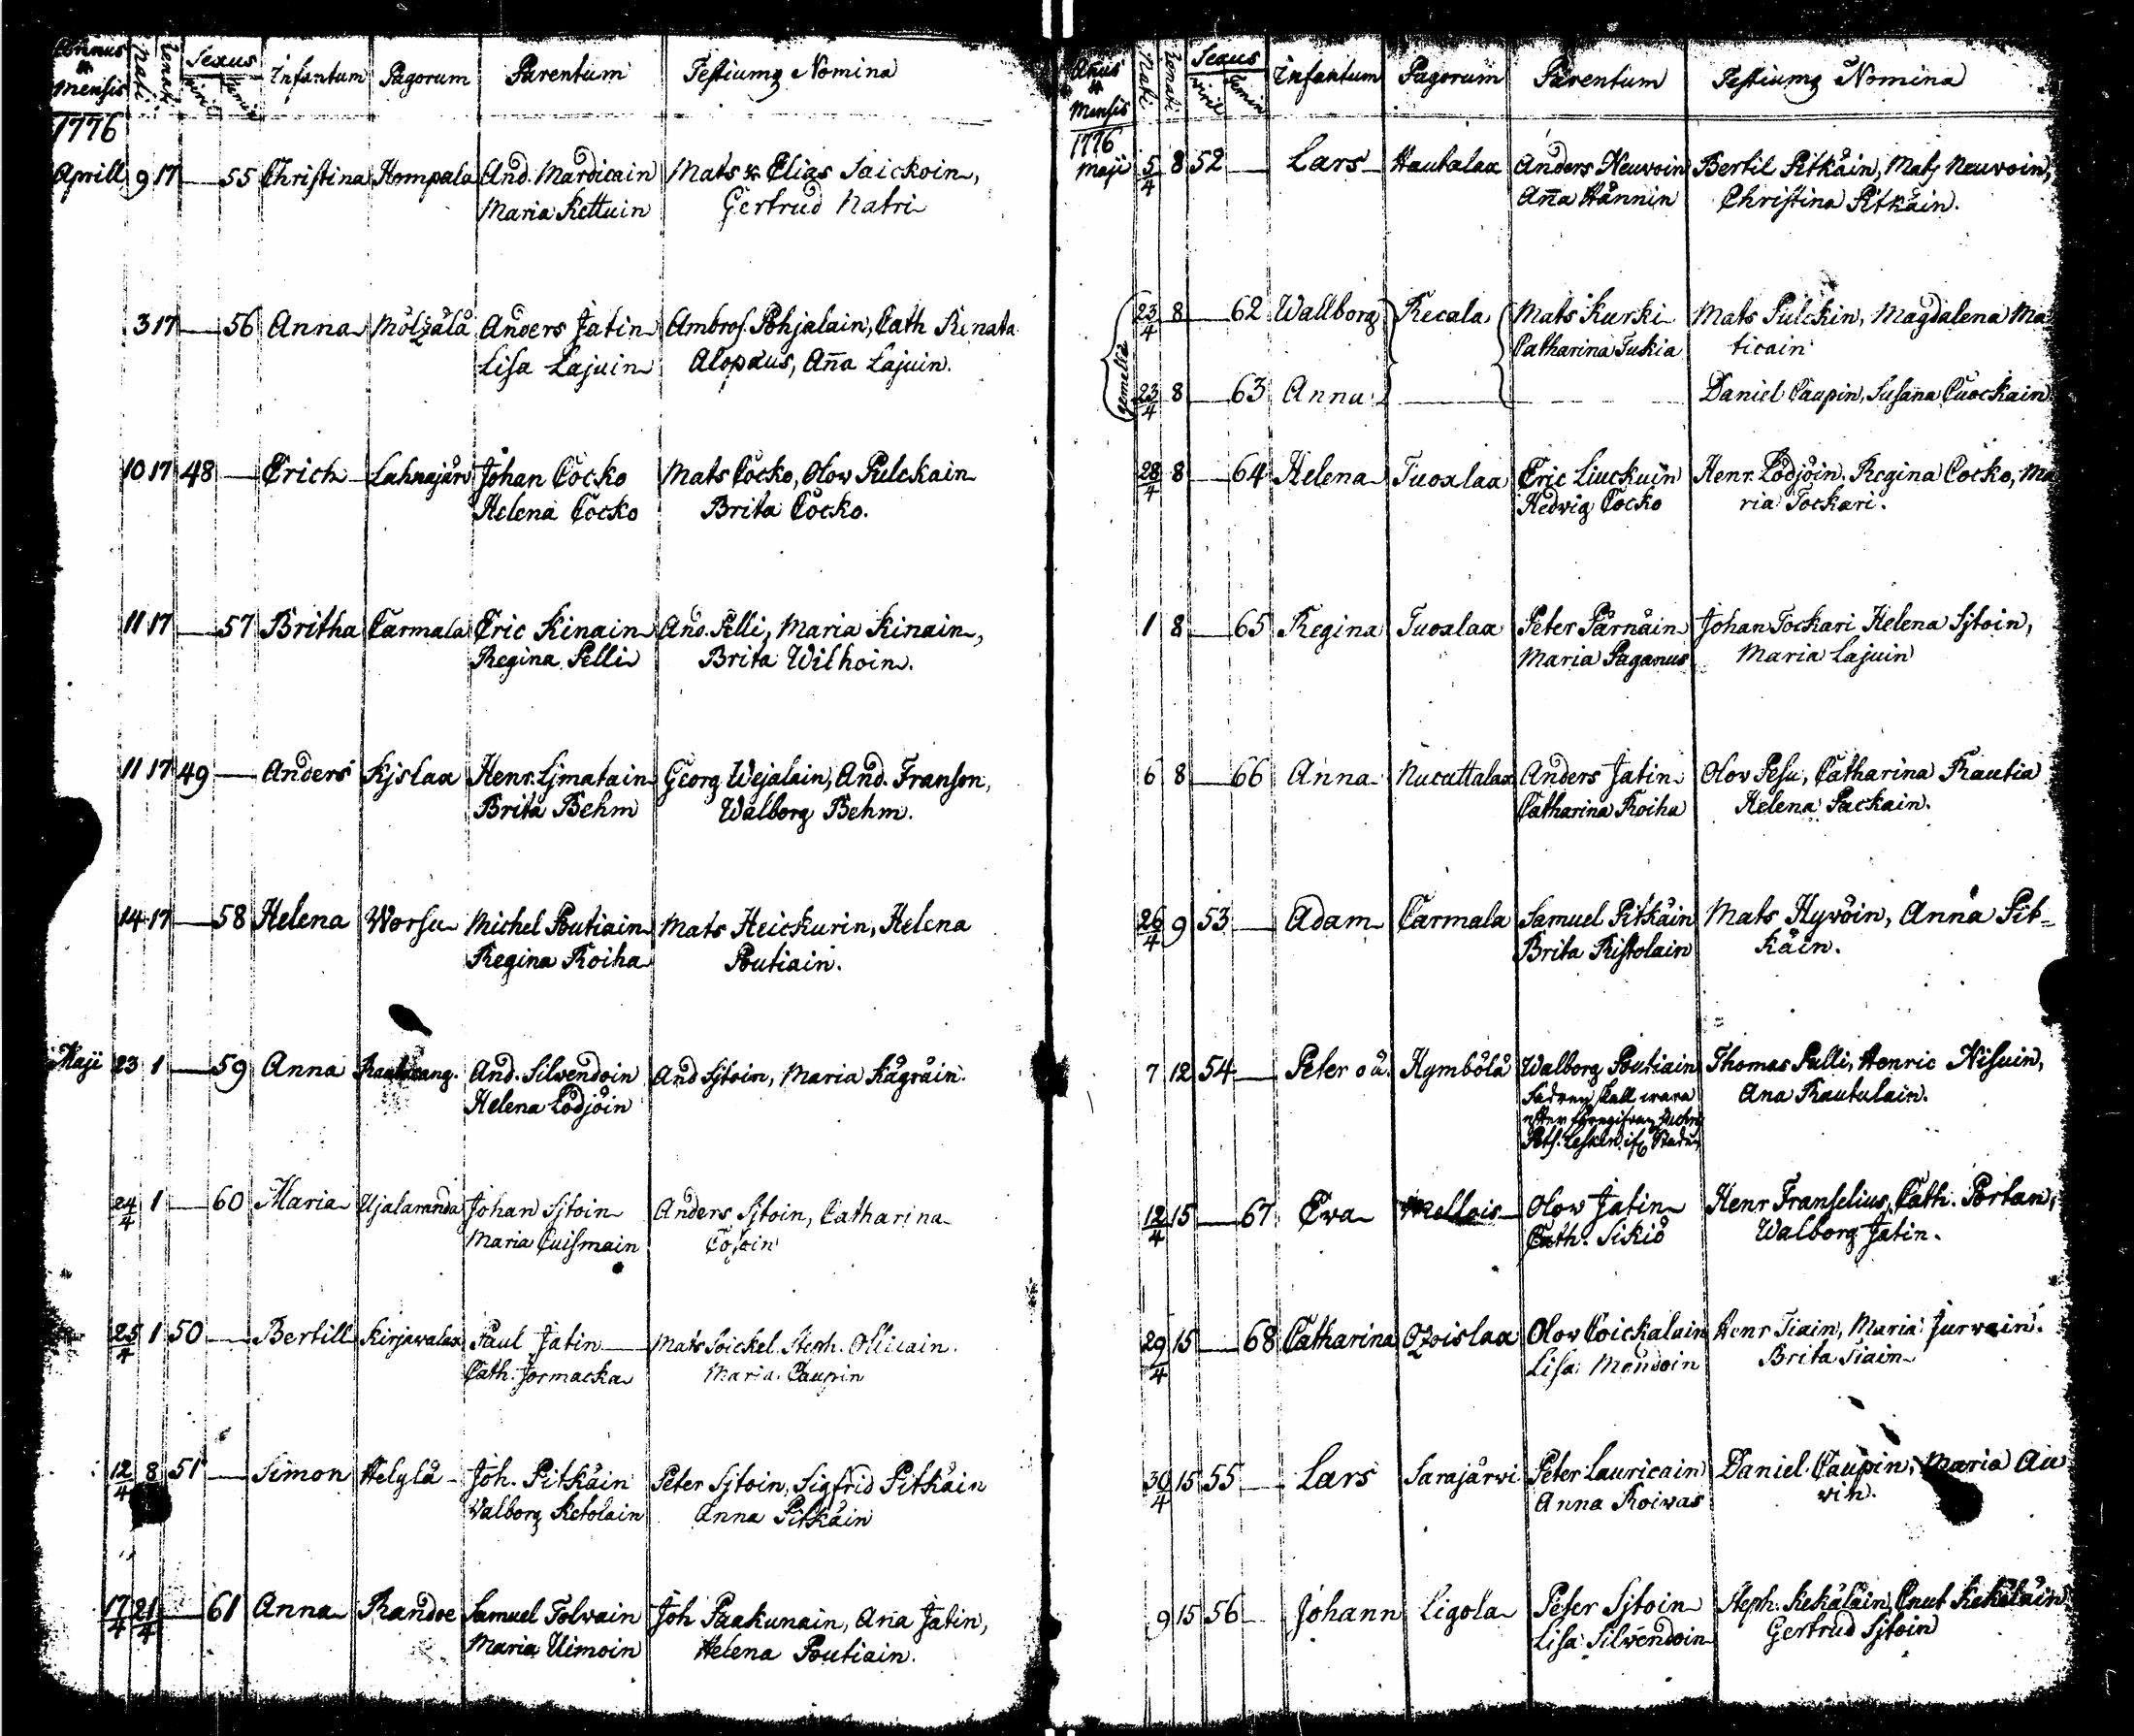 Annus & Mensis Nati Renati Sexus Infantum Pagorum Parentum Testiumq Nomina
viril femin
1776
Aprill 9 17 — 55 Christina Hompala And. Mardicain Mats & Elias Saickoin,
Maria Kettuin Gertrud Natri
3 17 — 56 Anna Mölzälä Anders Jatin Ambros. Pohjalain, Cath Renata
Lisa Lajuin Alopæus, Aña Lajuin.
10 17 48 — Erich Lahnajärv Johan Cocko Mats Cocko, Olov Pulckain
Helena Cocko Brita Cocko.
11 17 — 57 Britha Carmala Eric Kinain And. Pelli, Maria Kinain,
Regina Pelli Brita Wilhoin.
11 17 49 — Anders Kjslax Henr. Ljmatain Georg Wejalain, And. Franson,
Brita Behm Walborg Behm.
14 17 — 58 Helena Worsu Michel Poutiain Mats Heickurin, Helena
Regina Roiha Poutiain.
Maji 23 1 — 59 Anna And. Silvendoin And Sjtoin, Maria Kägräin.
Helena Lödjöin
24/4 1 — 60 Maria Ujalaranda Johan Sjtoin Anders Sjtoin, Catharina
Maria Cuismain Cosoin
25/4 1 50 — Bertill Kirjawalax Paul Jatin Mats Soickel. Steph. Ollicain.
Cath. Jormacka Maria Caupin
12/4 8 51 — Simon Helylä Joh. Pitkäin Peter Sjtoin, Sigfrid Pitkäin
Walborg Ketolain Anna Pitkäin
17/4 21/4 — 61 Anna Randoe Samuel Tolvain Joh Paakunain, Ana Jatin,
Maria Uimoin Helena Poutiain.
Añus & Mensis Nati Renati Sexus Infantum Pagorum Parentum Testiumq Nomina
viril Femin
1776
Maji 5/4 8 52 — Lars Hautalax Anders Neuvoin Bertil Pitkäin, Mats Neuvoin,
Aña Hännin Christina Pitkäin.
gemella 23/4 8 — 62 Wallborg Recala Mats Kurki Mats Pulckin, Magdalena Ma
Catharina Tukia ticain
23/4 8 — 63 Anna — Daniel Caupin, Susana Cuockain
28/4 8 — 64 Helena Tuoxlax Eric Liuckuin Henr. Lödjöin. Regina Cocko, Ma
Hedvig Cocko ria Tockari.
1 8 — 65 Regina Tuoxlax Peter Pärnäin Johan Tockari Helena Sjtoin,
Maria Paganus Maria Lajuin
6 8 — 66 Anna Nucuttalax Anders Jatin Olov Pesu, Catharina Rautia
Catharina Roiha Helena Packain.
26/4 9 53 — Adam Carmala Samuel Pitkäin Mats Hyvöin, Anna Pit=
Brita Ristolain käin.
7 12 54 — Peter o ä. Hymbölä Walborg Poutiain Thomas Pulli, Henric Nisuin,
Fadren skall wara Ana Rautulain.
efter
12/4 15 — 67 Eva Mellois Olov Jatin Henr Franselius, Cath. Portan,
Cath. Sikiö Walborg Jatin.
29/4 15 — 68 Catharina Ozoislax Olov Coickalain Henr Tiain, Maria Jurvain.
Lisa Mondoin Brita Tiain
30/4 15 55 — Lars Sarajärvi Peter Lauricain Daniel Caupin, Maria Au
Anna Roivas vin.
9 15 56 — Johann Ligola Peter Sjtoin Steph. Kekäläin, Cnut Kekäläin
Lisa Silvendoin Gertrud Sjtoin